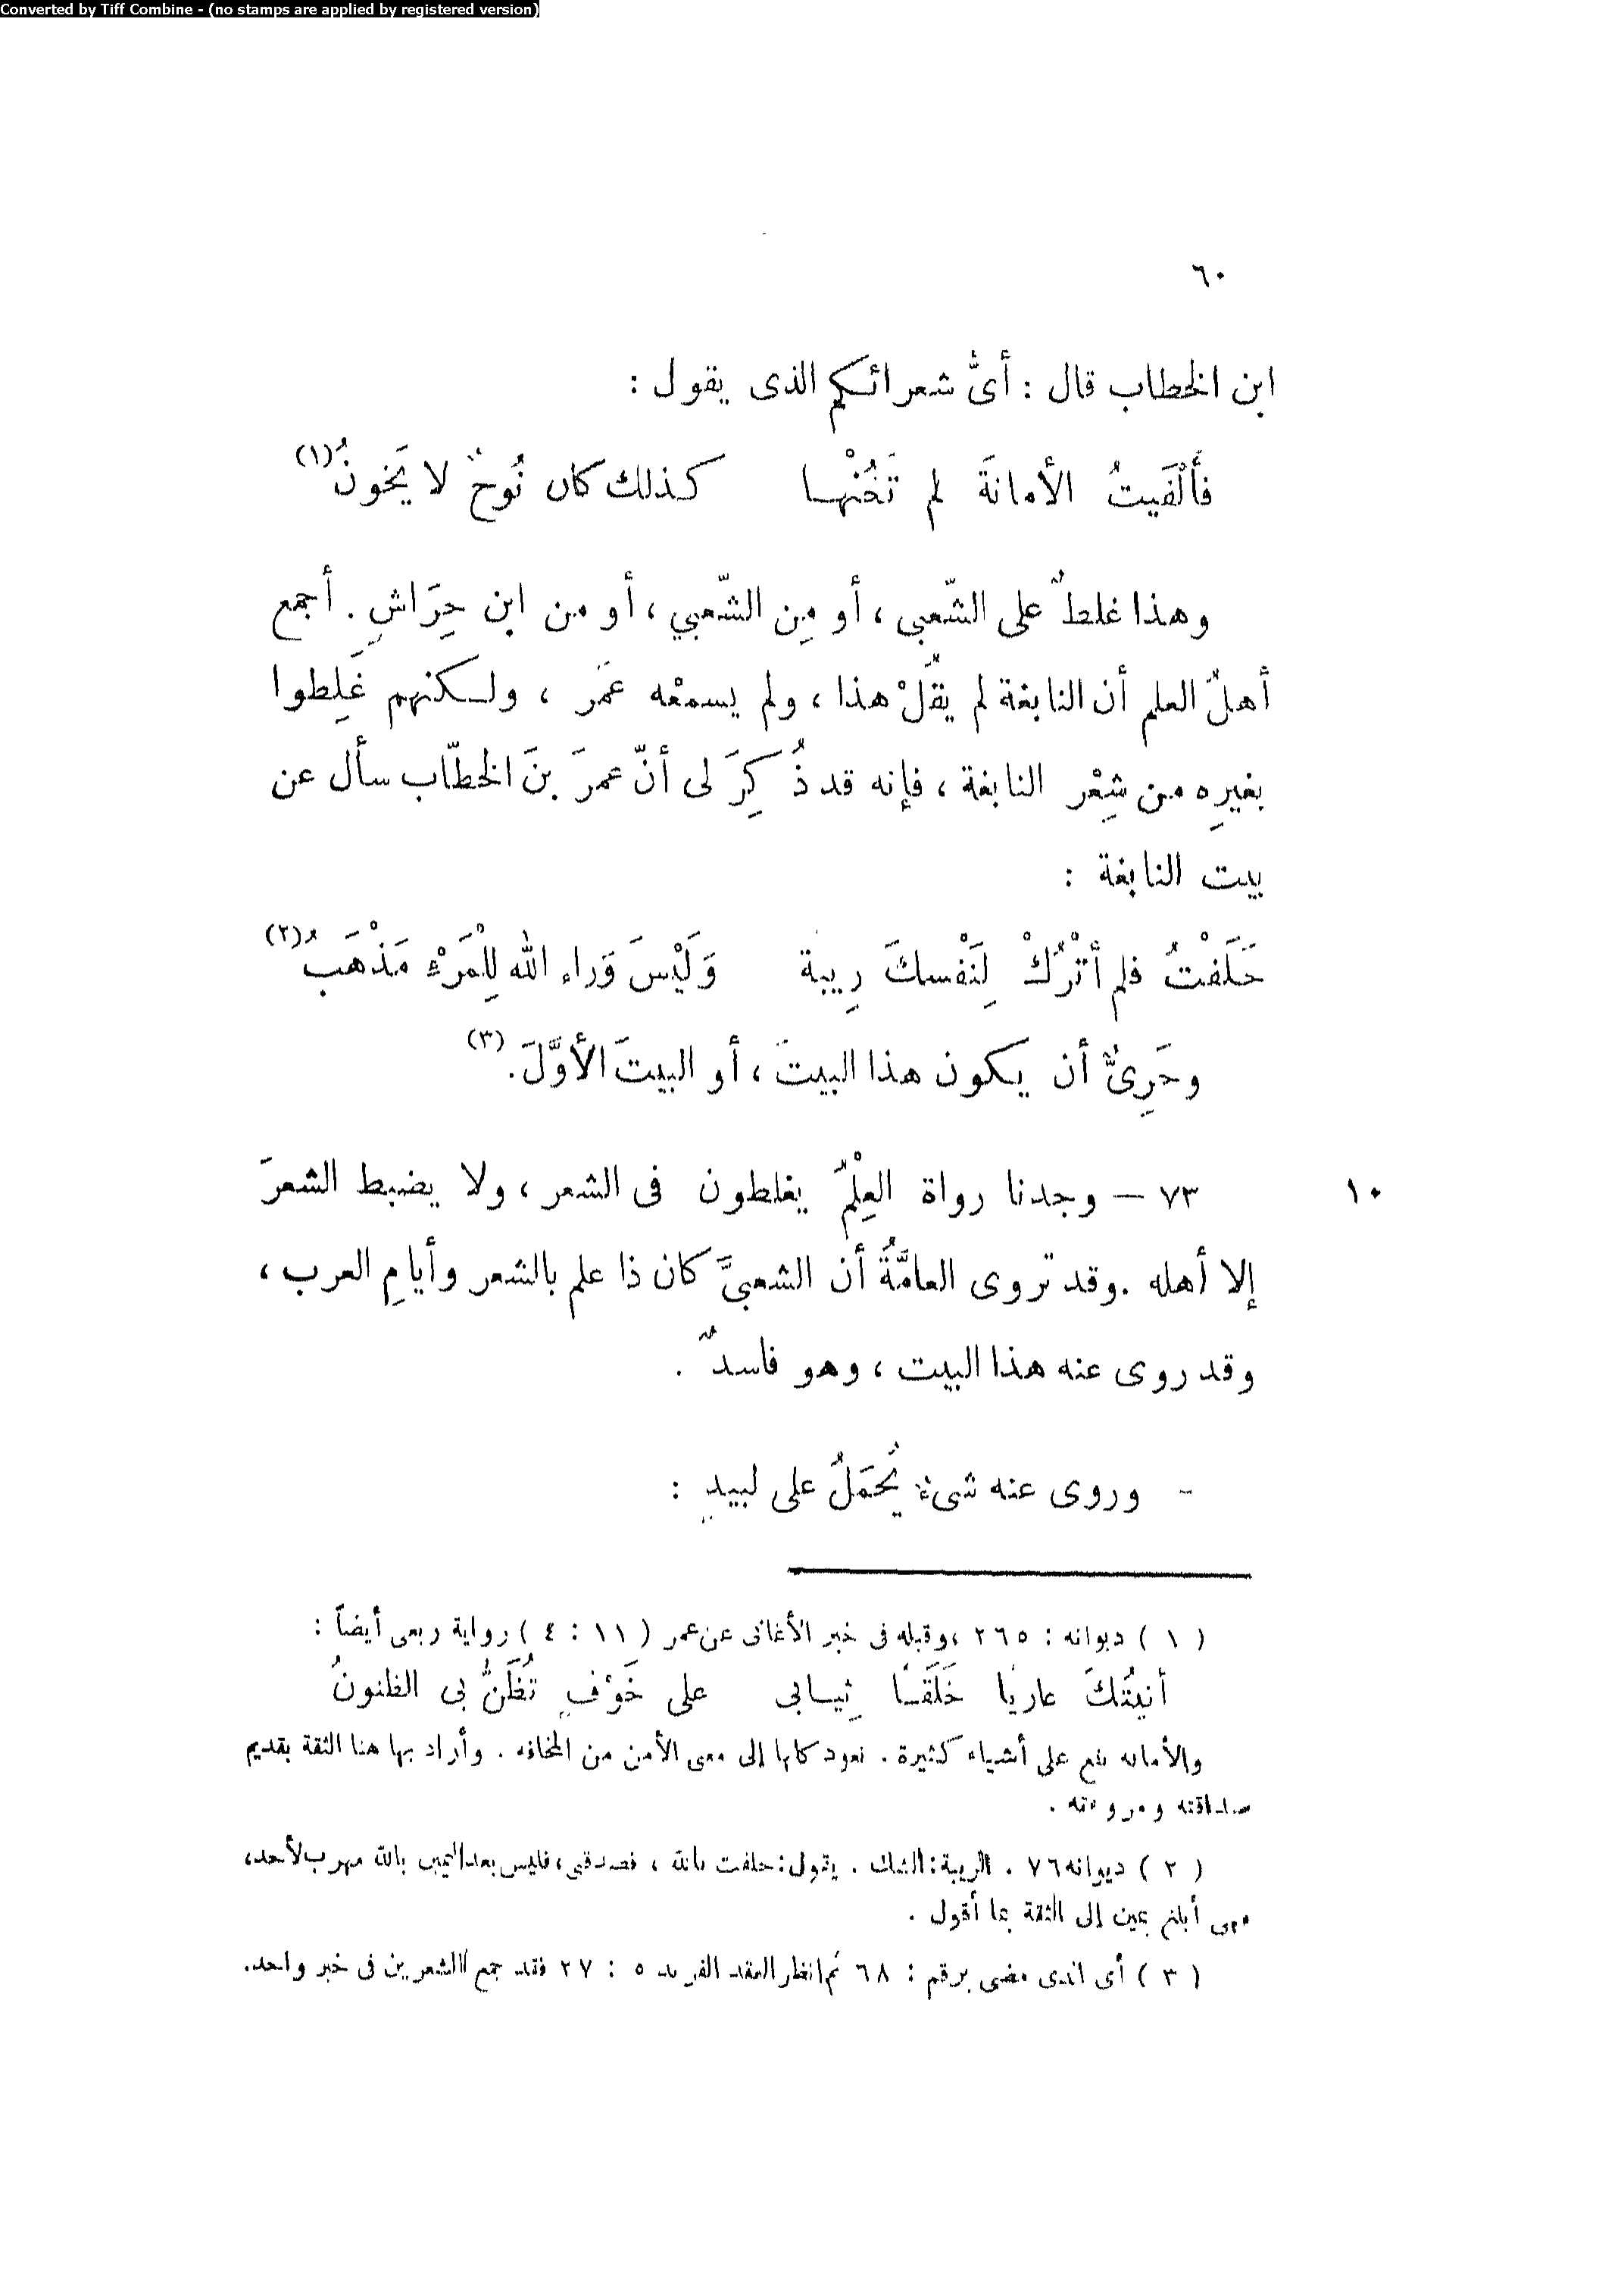 Converted by Tiff Combine - (no stamps are applied by registered version)
٦٠
ابن الخطاب قال : أىُّ شعرائكم الذى يقول :
فَأَلْفَيتُ الأمانَةَ لم تَخُنْها كذلك كان نُوحٌ لا يَخونُ (١)
وهذا غلطٌ على الشّعبى ، أو مِن الشّعبي ، أو من ابن حِرَاشٍ . أجمع
أهلُ العلم أن النابغة لم يقُلْ هذا ، ولم يسمعْه عمَر ، ولكنهم غَلِطوا
بغيرِه من شِعْر النابغة ، فإنه قد ذُكِرَ لى أنّ عمرَ بنَ الخطّاب سأل عن
بيت النابغة :
حَلَفْتُ فلم أتْرُكْ لِنَفْسكَ رِيبة وَلَيْسَ وَراء الله لِلْمَرْءِ مَذْهَبُ (٢)
وحَرِىٌّ أن يكون هذا البيتَ ، أو البيتَ الأوَّلَ . (٣)
١٠
٧٣ — وجدنا رواة العِلْمُ يغلطون فى الشعر ، ولا يضبط الشعرَ
إلا أهله . وقد تروى العامَّةُ أن الشعبىَّ كان ذا علم بالشعر وأيامِ العرب ،
وقد روى عنه هذا البيت ، وهو فاسدٌ .
- وروى عنه شىءٌ يُحمَلُ على لبيدٍ :
( ١ ) ديوانه : ٢٦٥ ، وقبله فى خبر الأغانى عن عمر ( ١١ : ٤ ) رواية ربعى أيضاً :
أتيتُكَ عاريًا خَلَقًا ثِيابى على خَوْفٍ تُظَنُّ بى الظنونُ
والأمانه تقع على أشياء كثيرة . تعود كلها إلى معى الأمن من المخافه . وأراد بها هنا الثقة بقديم
صداقته ومروءته .
( ٢ ) ديوانه ٧٦ . الريبة : الشك . يقول : حلفت بالله ، فصدقنى ، فليس بعد اليمين بالله مهرب لأحد ،
أبلغ يمين إلى الثقة بما أقول .
( ٣ ) أى الذى مضى برقم : ٦٨ ثم انظر العقد الفريد ٥ : ٢٧ فقد جمع الشعرين فى خبر واحد .